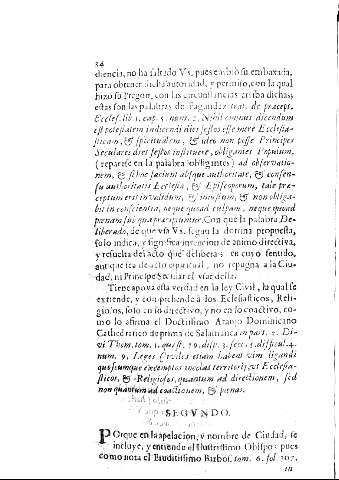 34
diencia, no ha faltado Vs. pues embiò su embaxada,
para obtener dicha autoridad, y permiso, con la qual
hizo su Pregon, con las circunstancias arriba dichas;
estas son las palabras de Fagundez trat. de præcept.
Eccles. lib. 1. cap. 5. num. 2. Nihilominus dicendum
est potestatem indicendi dies festos esse mere Ecclesia-
sticam, & spiritualem, & ideo non posse Principes
Seculares dies festos instituere, obligantes Populum,
( reparese en la palabra obligantes ) ad observatio-
nem, & si hoc faciant absque authoritate, & consen-
su authoritatis Ecclesiæ, & Episcoporum, tale præ-
ceptum erit invalidum, & and non obliga-
bit in conscientia, neque quoad culpam, neque quoad
pœnam sub qua præcipiuntur. Con que la palabra De-
liberado, de que vsa Vs. segun la doctrina propuesta,
solo indica, y significa intencion de animo directiva,
y resuelta del acto que delibera; en cuyo sentido,
aunque sea de acto espiritual, no repugna à la Ciu-
dad, ni Principe Secular el vsar della.
Tiene apoyo esta verdad en la ley Civil, la qual se
extiende, y comprehende à los Eclesiasticos, Reli-
giosos, solo en lo directivo, y no en lo coactivo, co-
mo lo afirma el Doctissimo Araujo Dominicano
Cathedratico de prima de Salamanca in part. 2. Di-
vi Thom. tom. 1. quæst. 79. disp. 3. sect. 5. difficul. 4.
num. 9. Leges Civiles etiam habent vim ligandi
quoscumque exemptos incolas territorij, vt Ecclesia-
sticos, & Religiosos, quantum ad directionem, sed
non quantum ad coactionem, & pœnas.
SEGVNDO.
POrque en la apelacion, y nombre de Ciudad, se
incluye, y entiende el Ilustrissimo Obispo; pues
como nota el Eruditissimo Barbos. tom. 6. fol. 307.
in